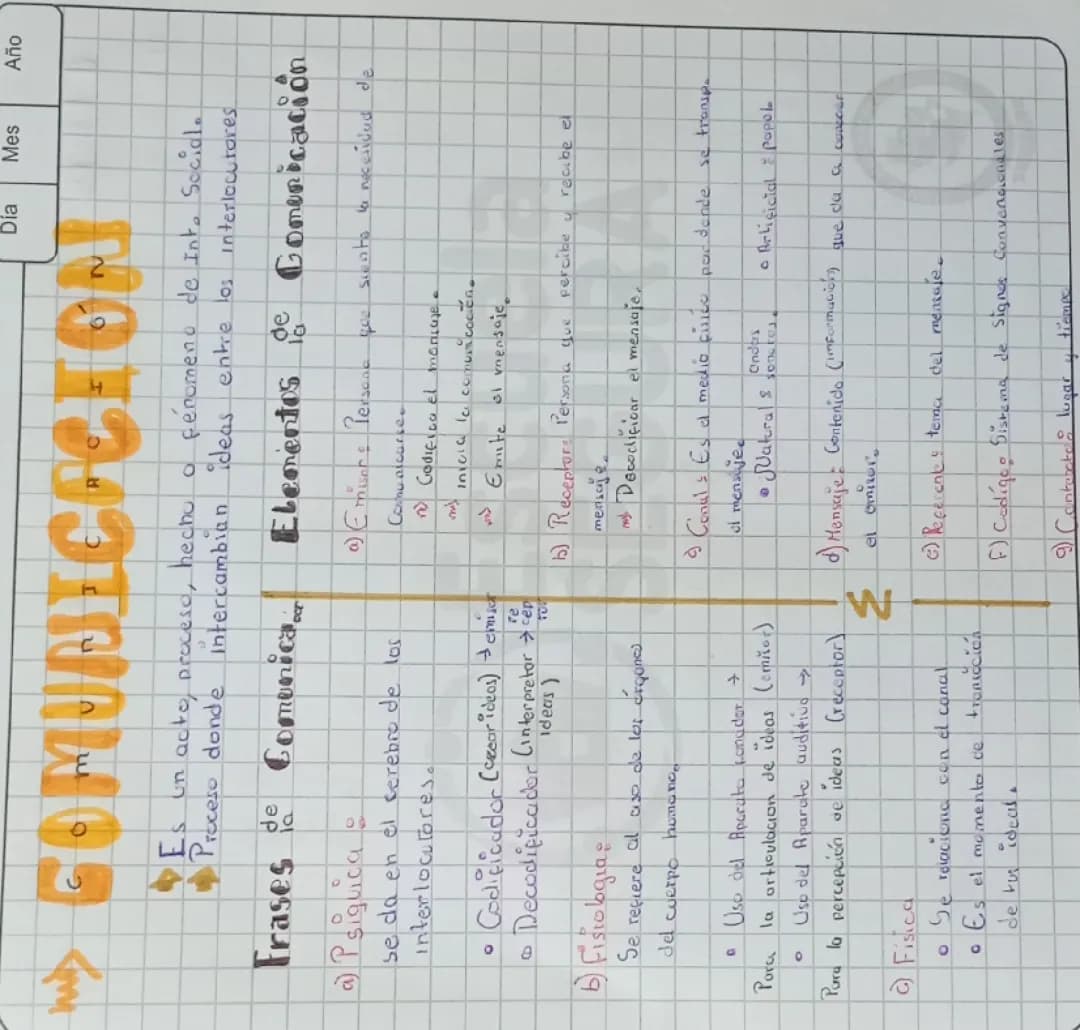 Día Mes Año
COMUNICACIÓN
Es un acto, proceso, hecho o fénomeno de Int. Social.
Proceso donde intercambian ideas entre los interlocutores
Frases de la Comunica
a) Psíquica:
Se da en el cerebro de los
interlocutores.
Codificador (crear ideas) → emisor
Decodificador (interpretar → receptor
ideas)
b) Fisiologia:
Se refiere al uso de los órganos
del cuerpo humano.
Uso del Aparato fonador →
Para la articulacion de ideas (emisor)
Uso del Aparato auditivo →
Para la percepción de ideas (receptor)
c) Física
Se relaciona con el canal
Es el momento de
de las ideas.
Elementos de la Comunicación
a) Emisor: Persona que siente la necesidad de
Comunicarse.
Codifica el mensaje.
Inicia la comunicación.
Emite el mensaje.
b) Receptor: Persona que percibe y recibe el
mensaje.
Decodificar el mensaje.
c) Canal: Es el medio físico por donde se transp.
el mensaje.
Natural: Ondas sonoras.
Artificial: papel
d) Mensaje: Contenido (información) que da a conocer
el emisor.
e) Referente: tema del mensaje.
f) Codígo: Sistema de signos Convencionales
g) lugar y tiempo